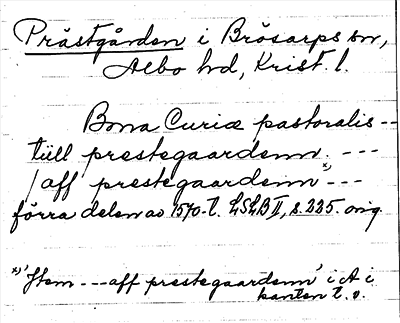 Prästgården i Brösarps sn,
Albo hd, Krist. l.
Bona Curiæ pastoralis --
tiill prestegaardenn. ---
/aff prestegaardenn *) ---
förra delen av 1570-t. LSLB II, s. 225. orig.
*) 'Item --- aff prestegaardenn' i A i
kanten t. v.